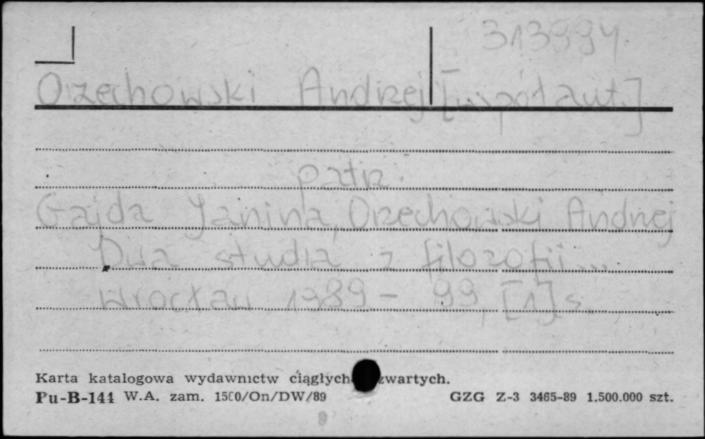 313994.
Orzechowski Andrzej [współaut.]
patrz:
Gajda Janina, Orzechowski Andrzej
Dwa studia z filozofii...
Wrocław 1989 - 99, [1] s.
Karta katalogowa wydawnictw ciągłych zwartych.
Pu-B-141 W.A. zam. 1500/On/DW/89 GZG Z-3 3465-89 1.500.000 szt.